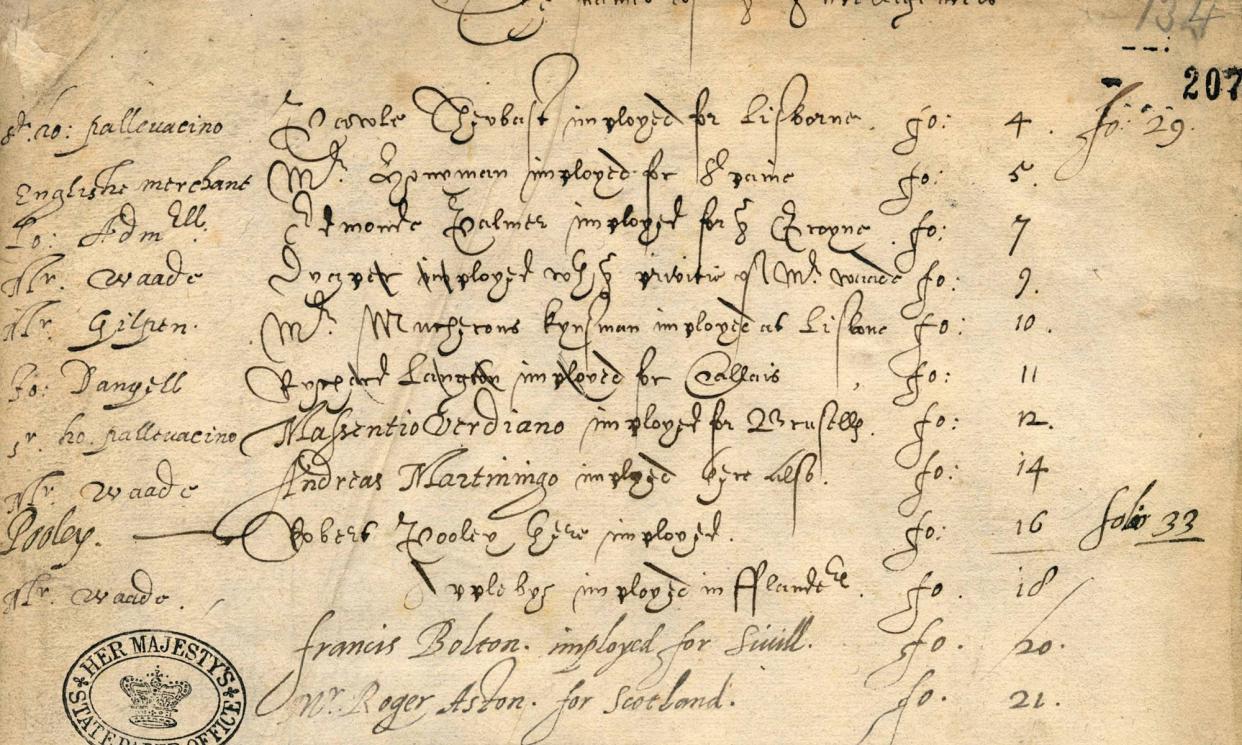 The names of
134
207
Sr. Ho: pallevacino Pcowle Chevbast imployed for Lisborne. fo: 4. fo: 29.
Englishe merchant Mr. Honyman imployed for Spaine fo: 5.
Lo: Admell. Edmonde Palmer imployed for ye Groyne. fo: 7
Mr. Waade Draper imployed wth ye privitie of Mr. Waade fo: 9.
Mr. Gilpen. Mr. Mucherons kynsman imployed at Lisbone fo: 10.
Jo: Danyell Rychard Langton imployed for Callais, fo: 11
Sr. Ho. pallevacino Massentio Verdiano imployed for Brusells. fo: 12.
Mr. Waade Andreas Martiningo imployed here also. fo: 14
Pooley. Robert Pooley here imployed. fo: 16 folio 33
Mr. Waade. Applebye imployed in fflanders fo. 18
francis Bolton. imployed for Sivill. fo. 20.
Mr. Roger Aston. for Scotland. fo. 21.
HER MAJESTY'S
STATE PAPER OFFICE